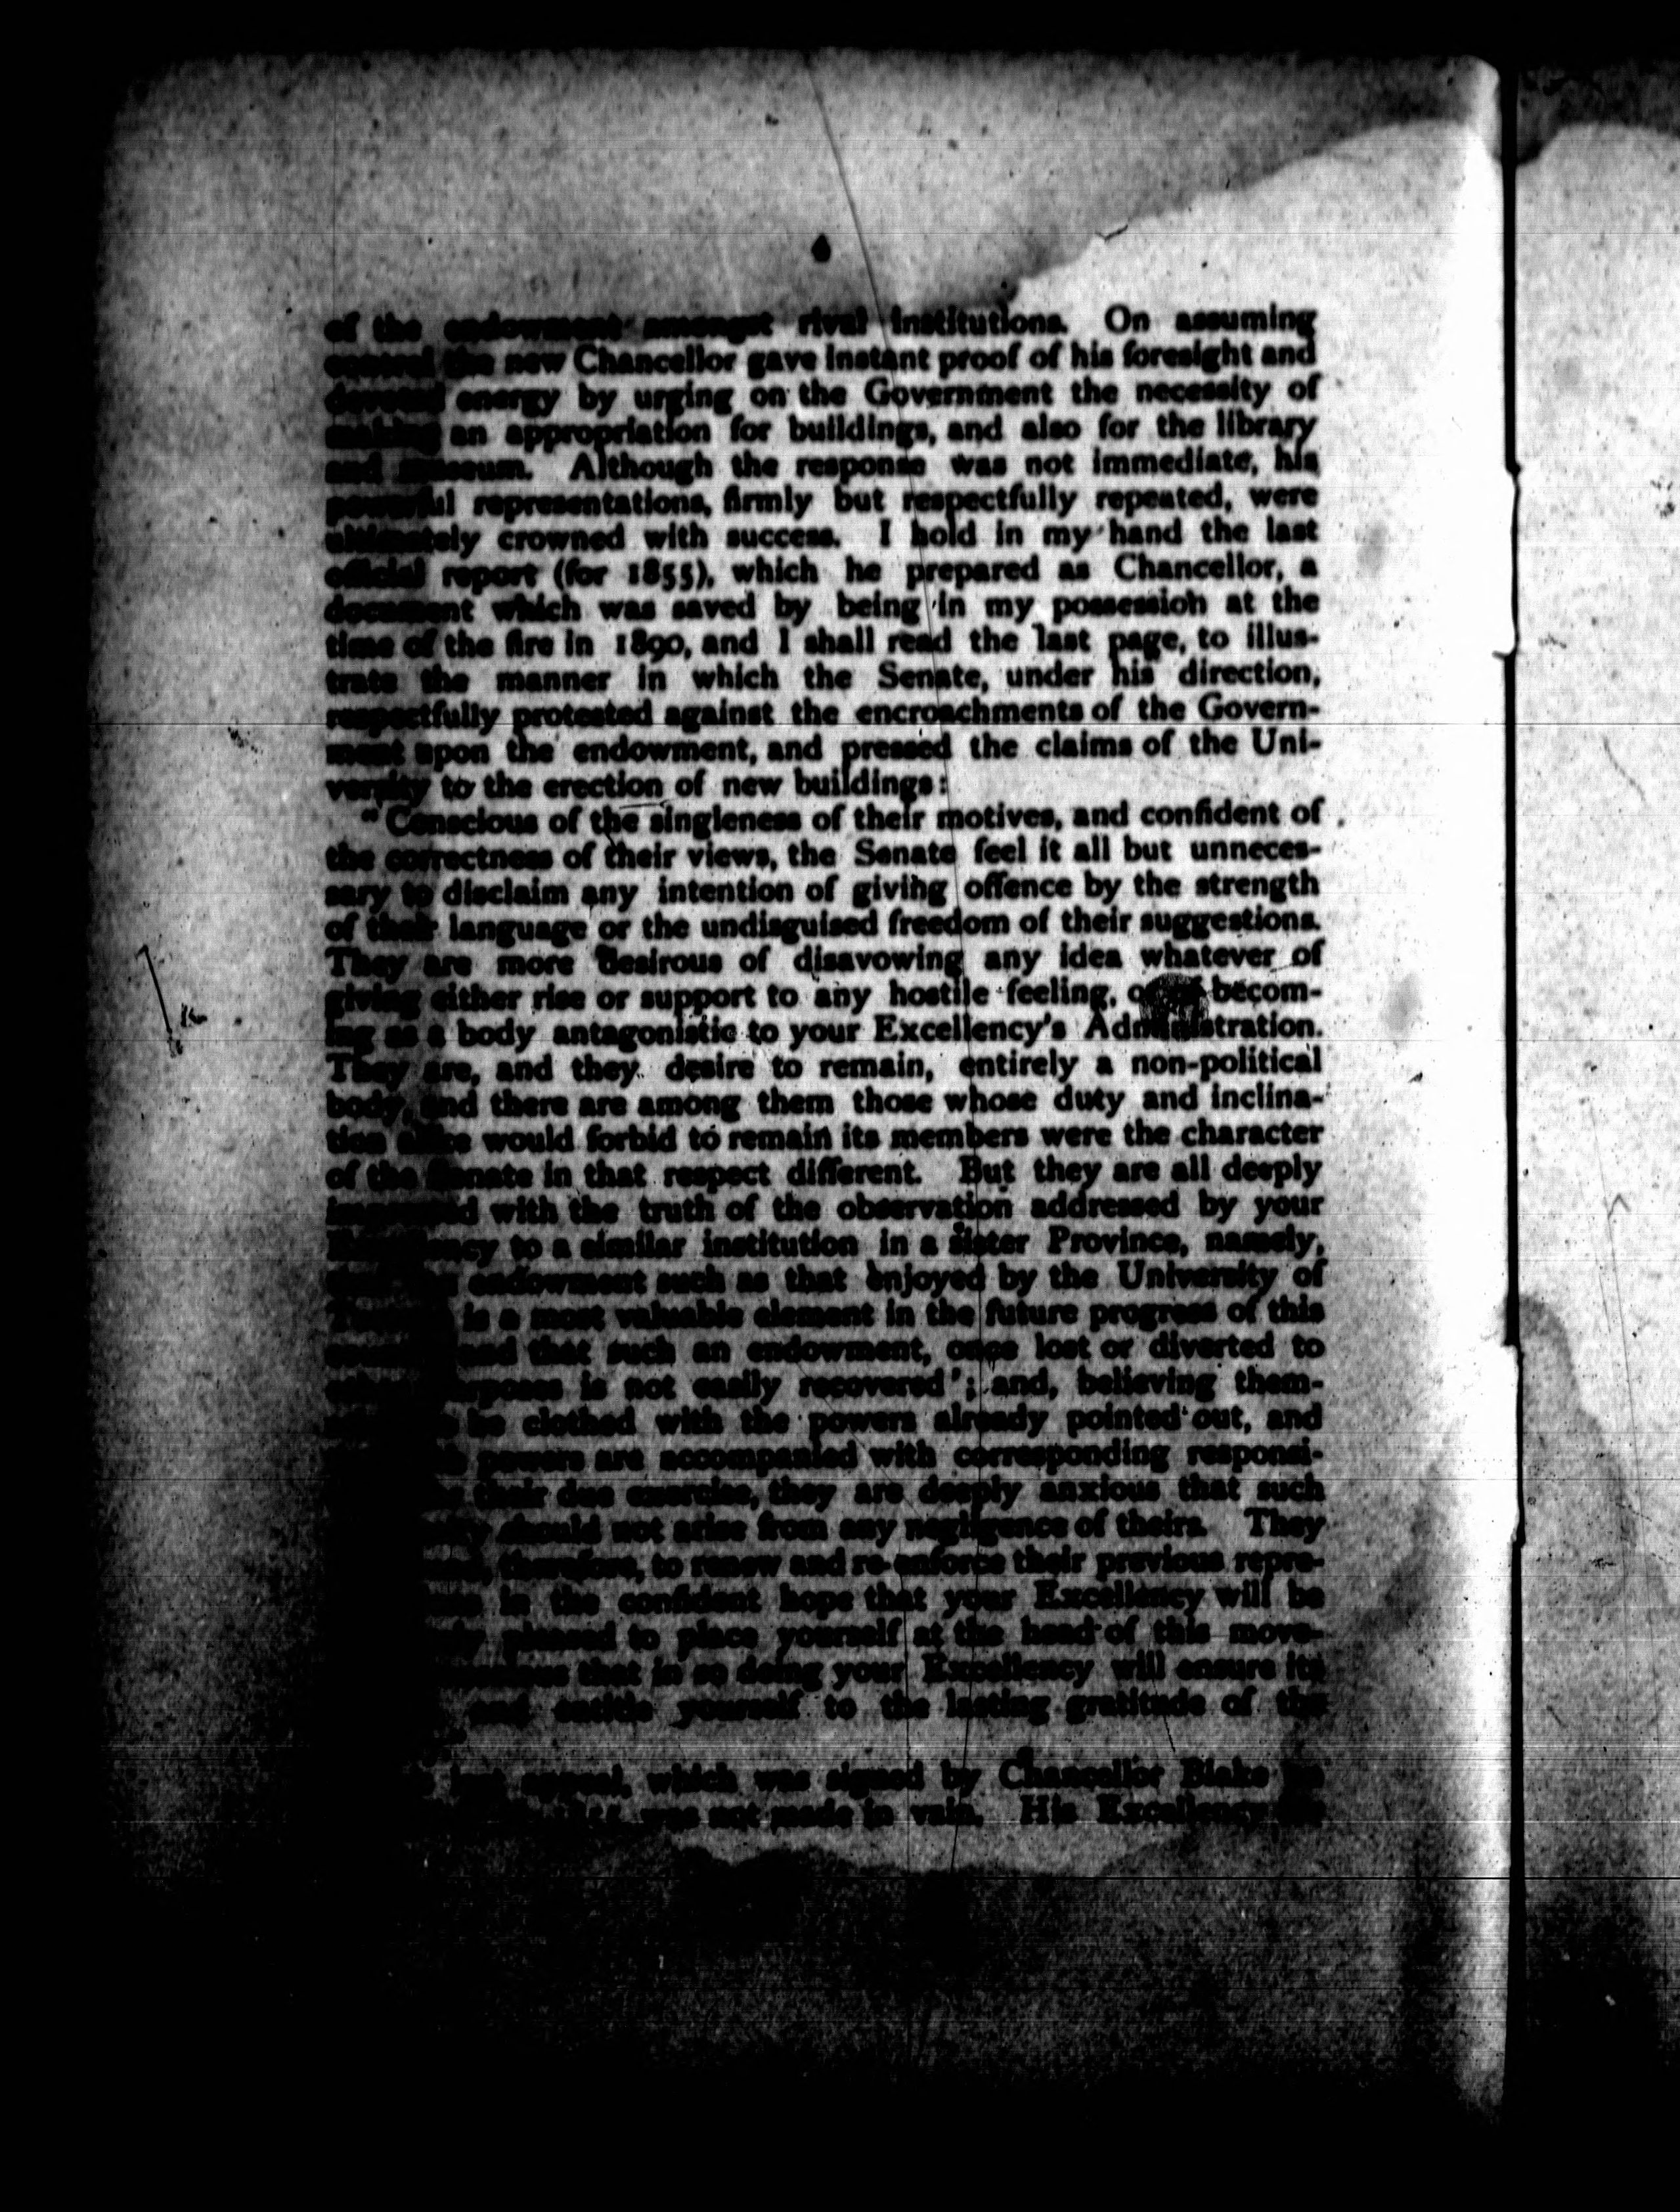 of the endowment amongst rival institutions. On assuming
control the new Chancellor gave instant proof of his foresight and
devoted energy by urging on the Government the necessity of
making an appropriation for buildings, and also for the library
and museum. Although the response was not immediate, his
powerful representations, firmly but respectfully repeated, were
ultimately crowned with success. I hold in my hand the last
official report (for 1855), which he prepared as Chancellor, a
document which was saved by being in my possession at the
time of the fire in 1890, and I shall read the last page, to illus-
trate the manner in which the Senate, under his direction,
respectfully protested against the encroachments of the Govern-
ment upon the endowment, and pressed the claims of the Uni-
versity to the erection of new buildings:
"Conscious of the singleness of their motives, and confident of
the correctness of their views, the Senate feel it all but unneces-
sary to disclaim any intention of giving offence by the strength
of their language or the undisguised freedom of their suggestions.
They are more desirous of disavowing any idea whatever of
giving either rise or support to any hostile feeling, or of becom-
ing as a body antagonistic to your Excellency's Administration.
They are, and they desire to remain, entirely a non-political
body, and there are among them those whose duty and inclina-
tion alike would forbid to remain its members were the character
of the Senate in that respect different. But they are all deeply
impressed with the truth of the observation addressed by your
Excellency to a similar institution in a sister Province, namely,
endowment such as that enjoyed by the University of
is a most valuable element in the future progress of this
and that such an endowment, once lost or diverted to
purposes is not easily recovered'; and, believing them-
be clothed with the powers already pointed out, and
powers are accompanied with corresponding responsi-
their due exercise, they are deeply anxious that such
should not arise from any negligence of theirs. They
therefore, to renew and re-enforce their previous repre-
in the confident hope that your Excellency will be
pleased to place yourself at the head of this move-
that in so doing your Excellency will ensure its
and entitle yourself to the lasting gratitude of the
last appeal, which was signed by Chancellor Blake
was not made in vain. His Excellency